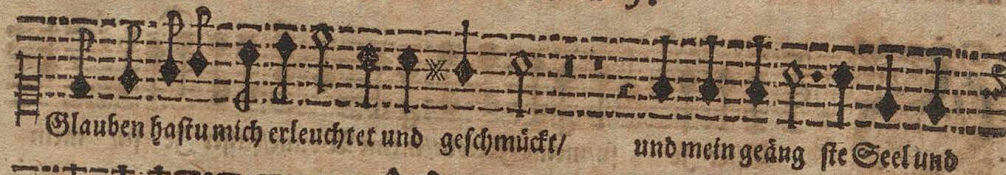 Glauben hastu mich erleuchtet und geschmückt/ und mein geäng ste Seel und